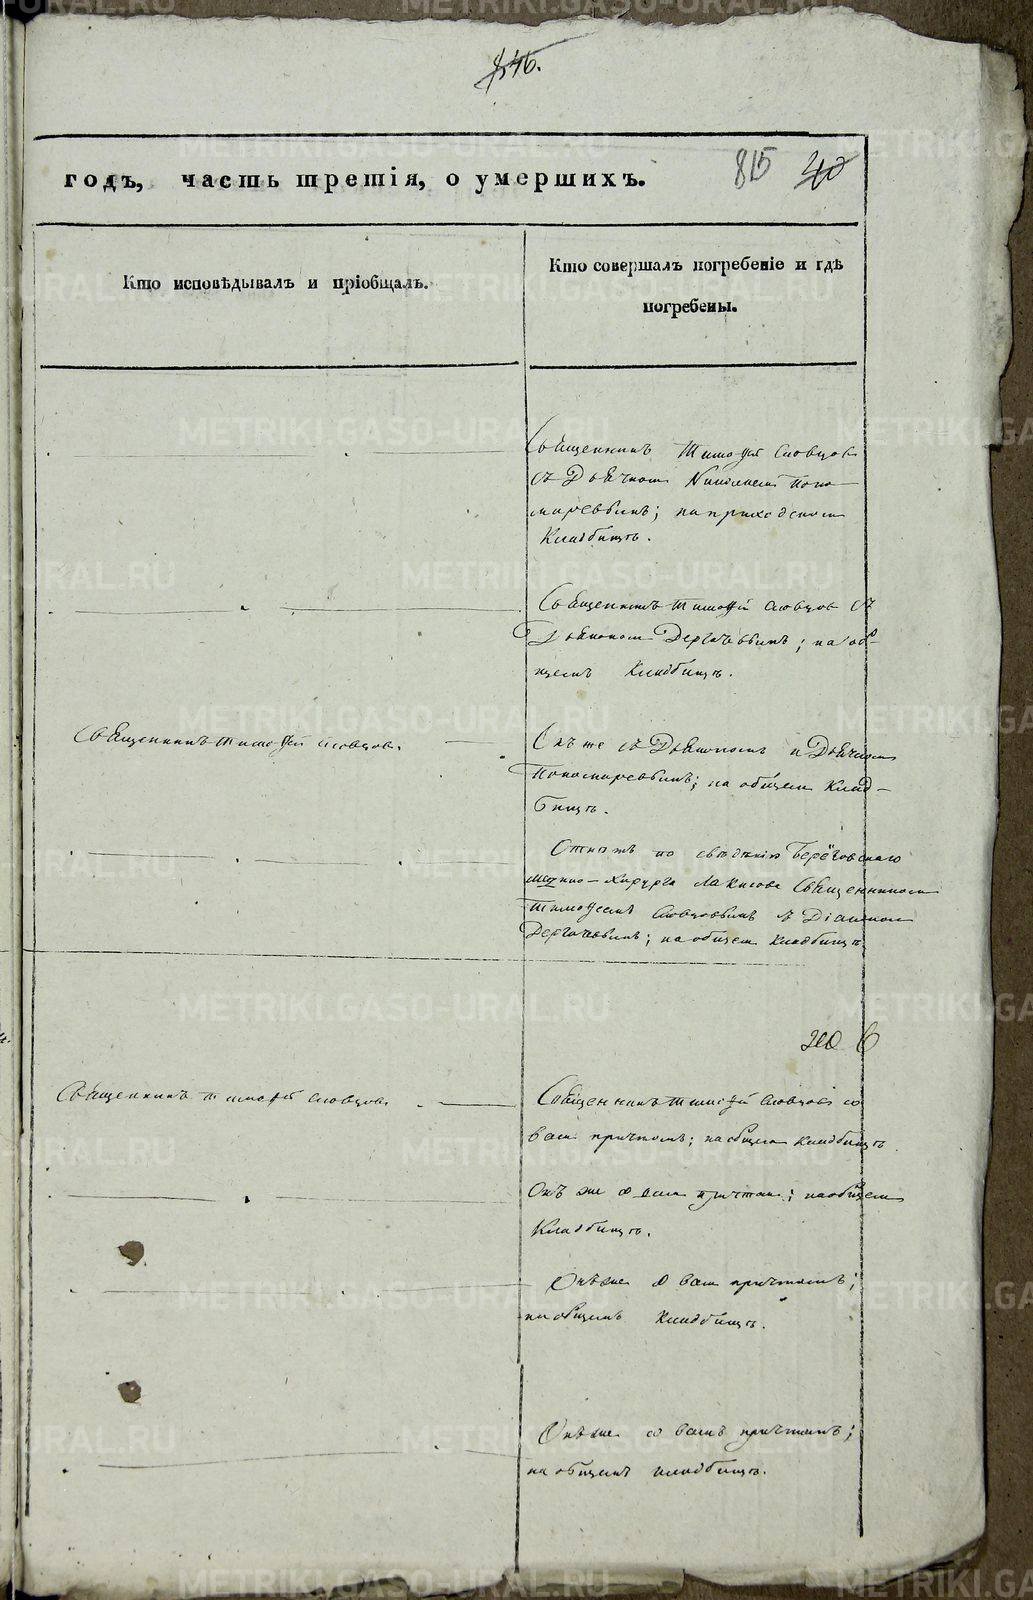 846.
815 40
годъ, часть третія, о умершихъ.
Кто исповѣдывалъ и пріобщалъ.
Кто совершалъ погребеніе и гдѣ
погребены.
Священникъ Тимофей Словцовъ
съ Дьячкомъ Поно-
маревымъ; на приходскомъ
Кладбищѣ.
Священникъ Тимофей Словцовъ съ
Дьякономъ Дергачевымъ; на об-
щемъ Кладбищѣ.
Священникъ Тимофей Словцовъ.
Онъ же съ Дьякономъ и Дьячкомъ
Пономаревымъ; на общемъ Клад-
бищѣ.
Отпѣтъ по свѣдѣнію Берёзовскаго
Хирурга Священникомъ
Тимофеемъ Словцовымъ съ Діакономъ
Дергачевымъ; на общемъ Кладбищѣ
Священникъ Тимофей Словцовъ.
Священникъ Тимофей Словцовъ со
всем причтомъ; на общемъ кладбищѣ
Онъ же со всем причтом; на общемъ
Кладбищѣ.
Онъ же со всем причтомъ;
на общемъ Кладбищѣ.
Онъ же со всемъ причтомъ;
на общемъ кладбищѣ.
METRIKI.GASO-URAL.RU